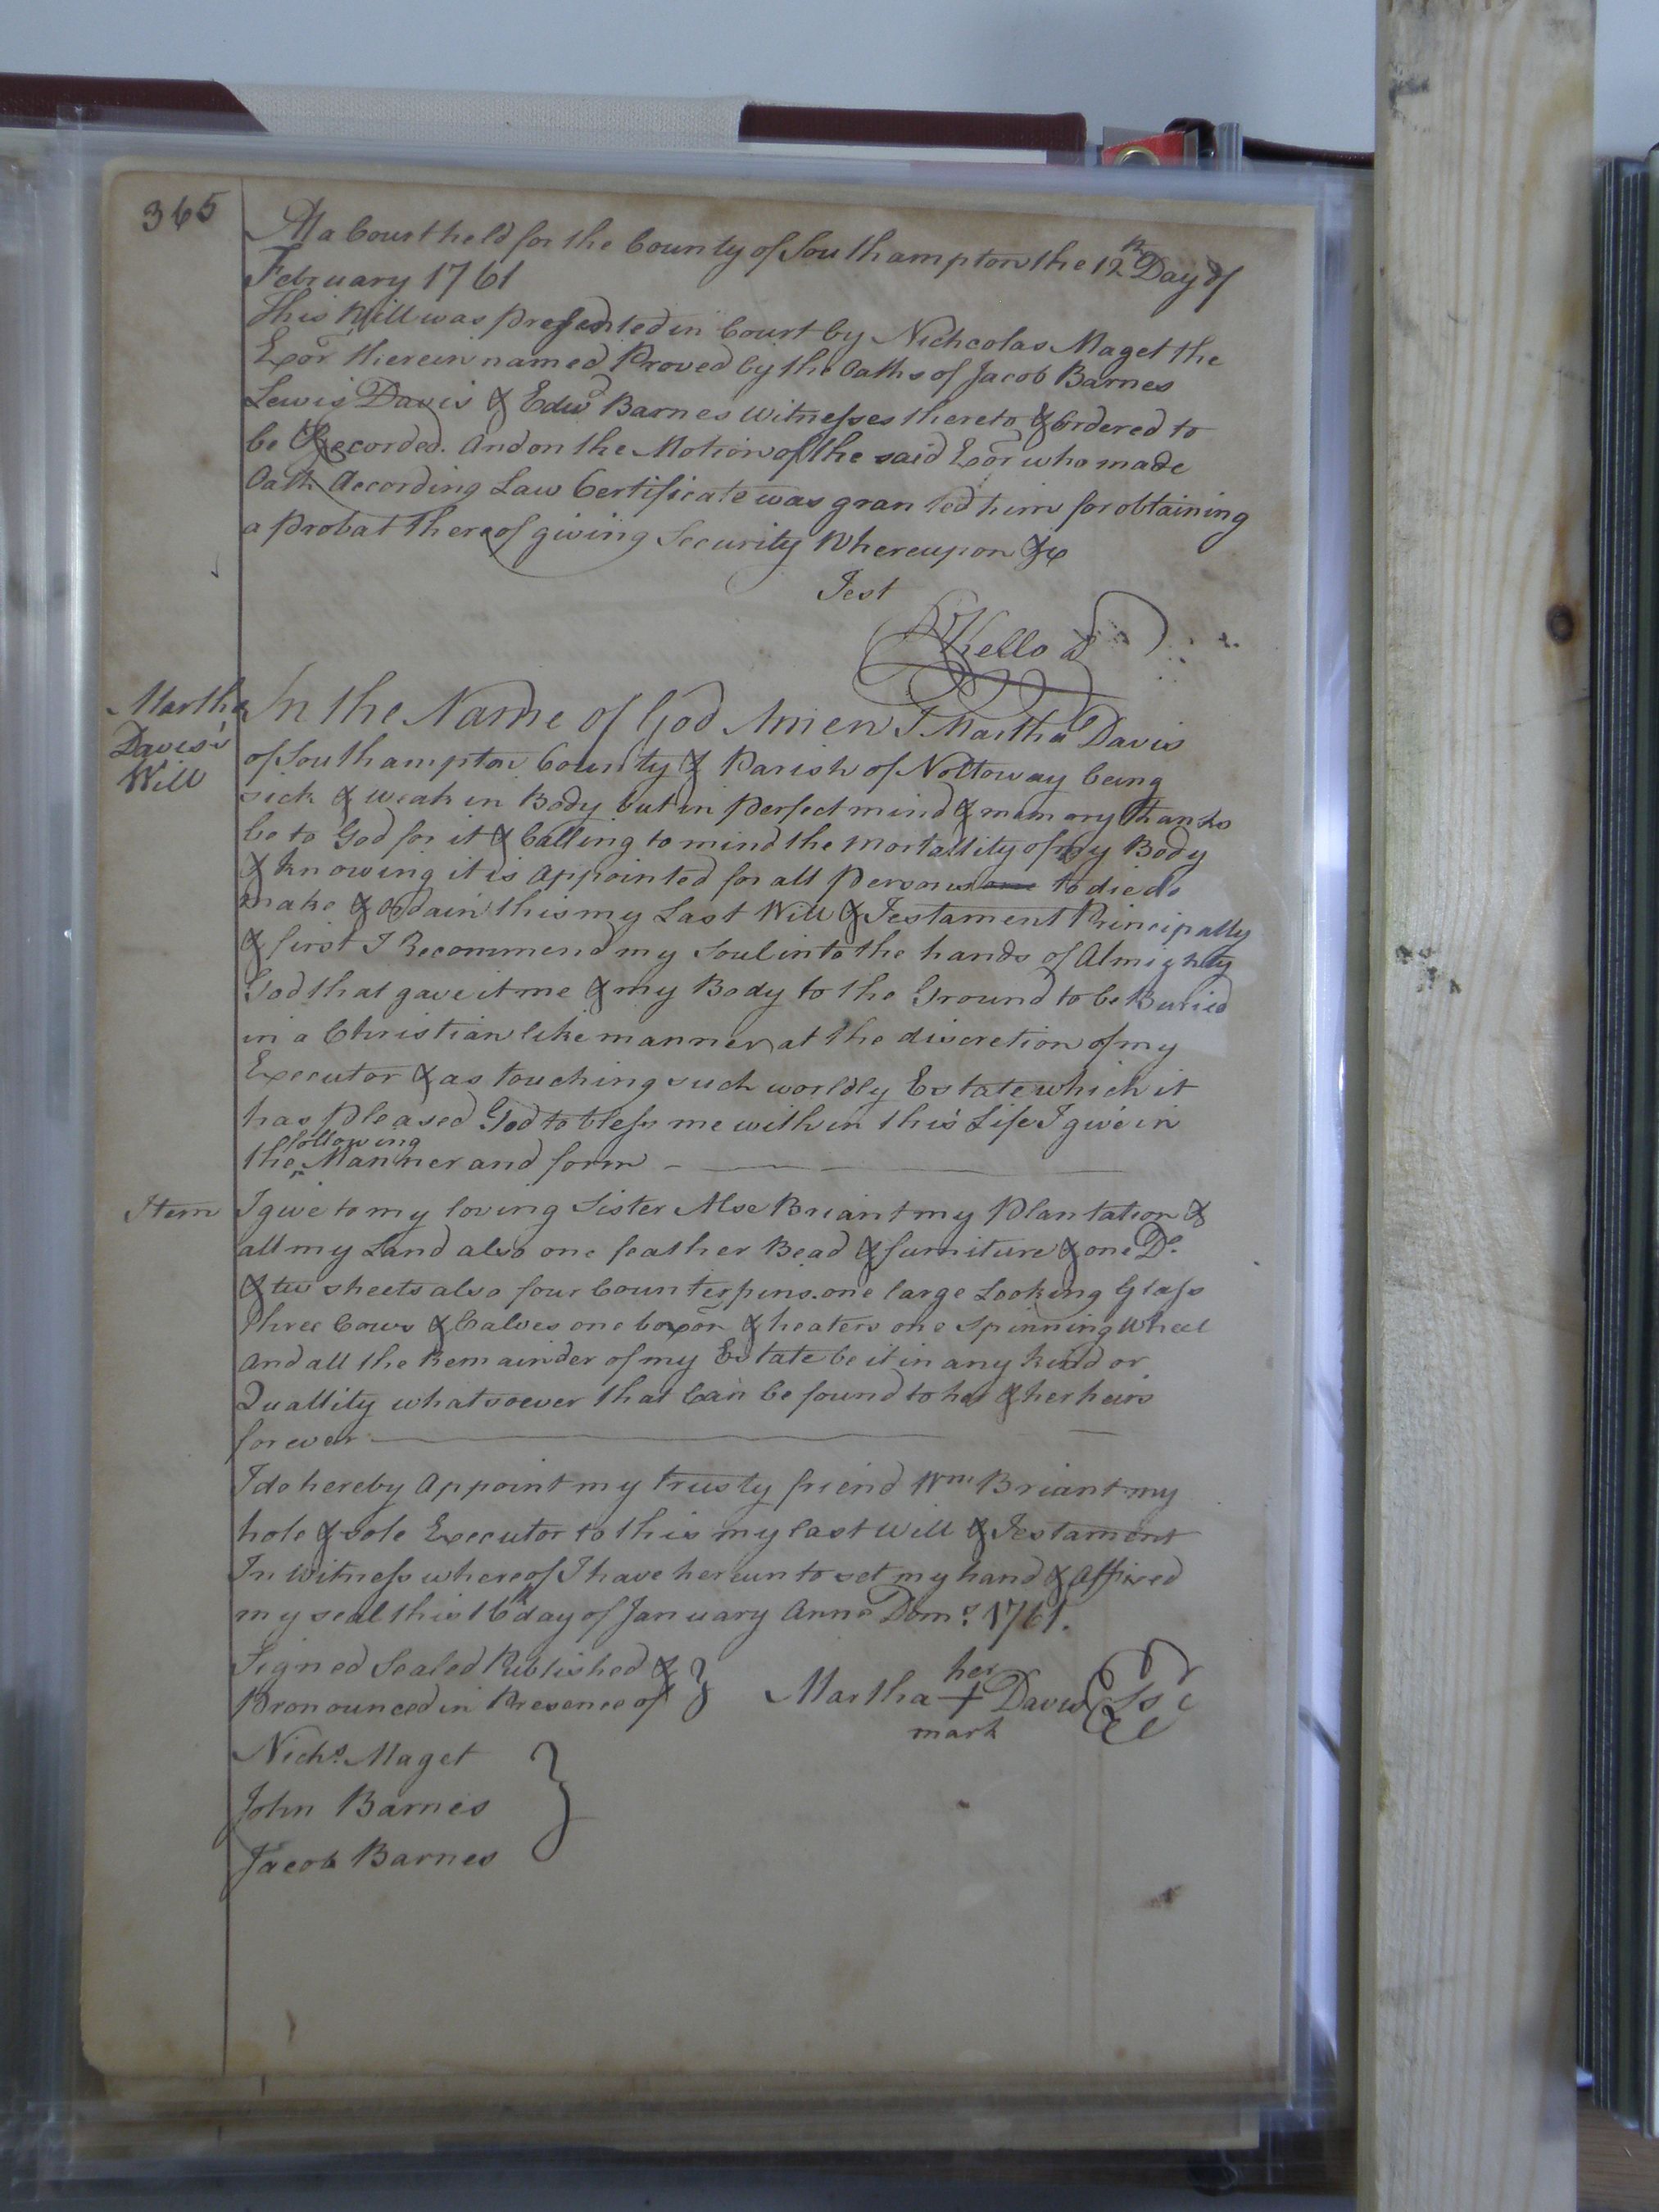 365
At a Court held for the County of Southampton the 12th Day of
February 1761
This Will was presented in Court by Nichcolas Maget the
Exor therein named Proved by the Oaths of Jacob Barnes
Lewis Davis & Edwd Barnes Witnesses thereto & Ordered to
be Recorded. And on the Motion of the said Exor who made
Oath According Law Certificate was granted him for obtaining
a probat thereof giving Security Whereupon &c
Test
Kello
Martha
Davis's
Will
In the Name of God Amen I Martha Davis
of Southampton County & Parish of Nottoway being
sick & weak in Body but in perfect mind & memory thanks
be to God for it & Calling to mind the Mortallity of my Body
& knowing it is appointed for all persons to die do
make & ordain this my Last Will & Testament Principally
& first I Recommend my Soul into the hands of Almighty
God that gave it me & my Body to the Ground to be Buried
in a Christian like manner at the discretion of my
Executor & as touching such worldly Estate which it
has pleased God to bless me with in this Life I give in
the following Manner and form
Item I give to my loving Sister Alse Briant my Plantation &
all my Land also one feather Bead & furniture & one Do
& two sheets also four Counterpins. one large Looking Glass
three Cows & Calves one boxon & heaters one spinning Wheel
And all the Remainder of my Estate be it in any kind or
Quallity whatsoever that Can be found to her & her heirs
for ever
I do hereby Appoint my trusty friend Wm Briant my
hole & sole Executor to this my last Will & Testament
In Witness whereof I have hereunto set my hand & Affixed
my seal this 16th day of January Anno Dom: 1761.
Signed Sealed Published &
Pronounced in Presence of
Martha her + mark Davis Ls
Nichs Maget
John Barnes
Jacob Barnes